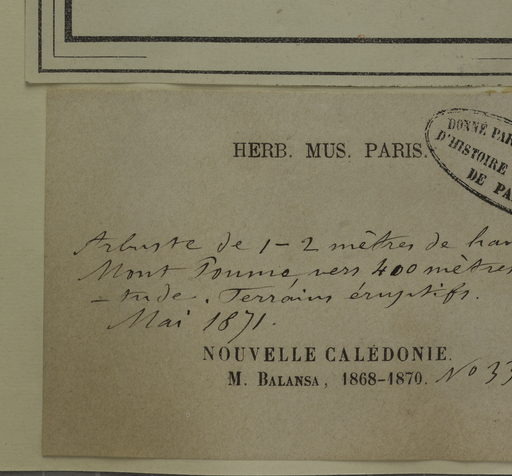 HERB. MUS. PARIS.
DONNÉ PAR
D'HISTOIRE
DE PA
Arbuste de 1-2 mètres de hau
Mont vers 400 mètres
-tude. Terrains éruptifs.
Mai 1871.
NOUVELLE CALÉDONIE.
M. BALANSA, 1868-1870. No 33